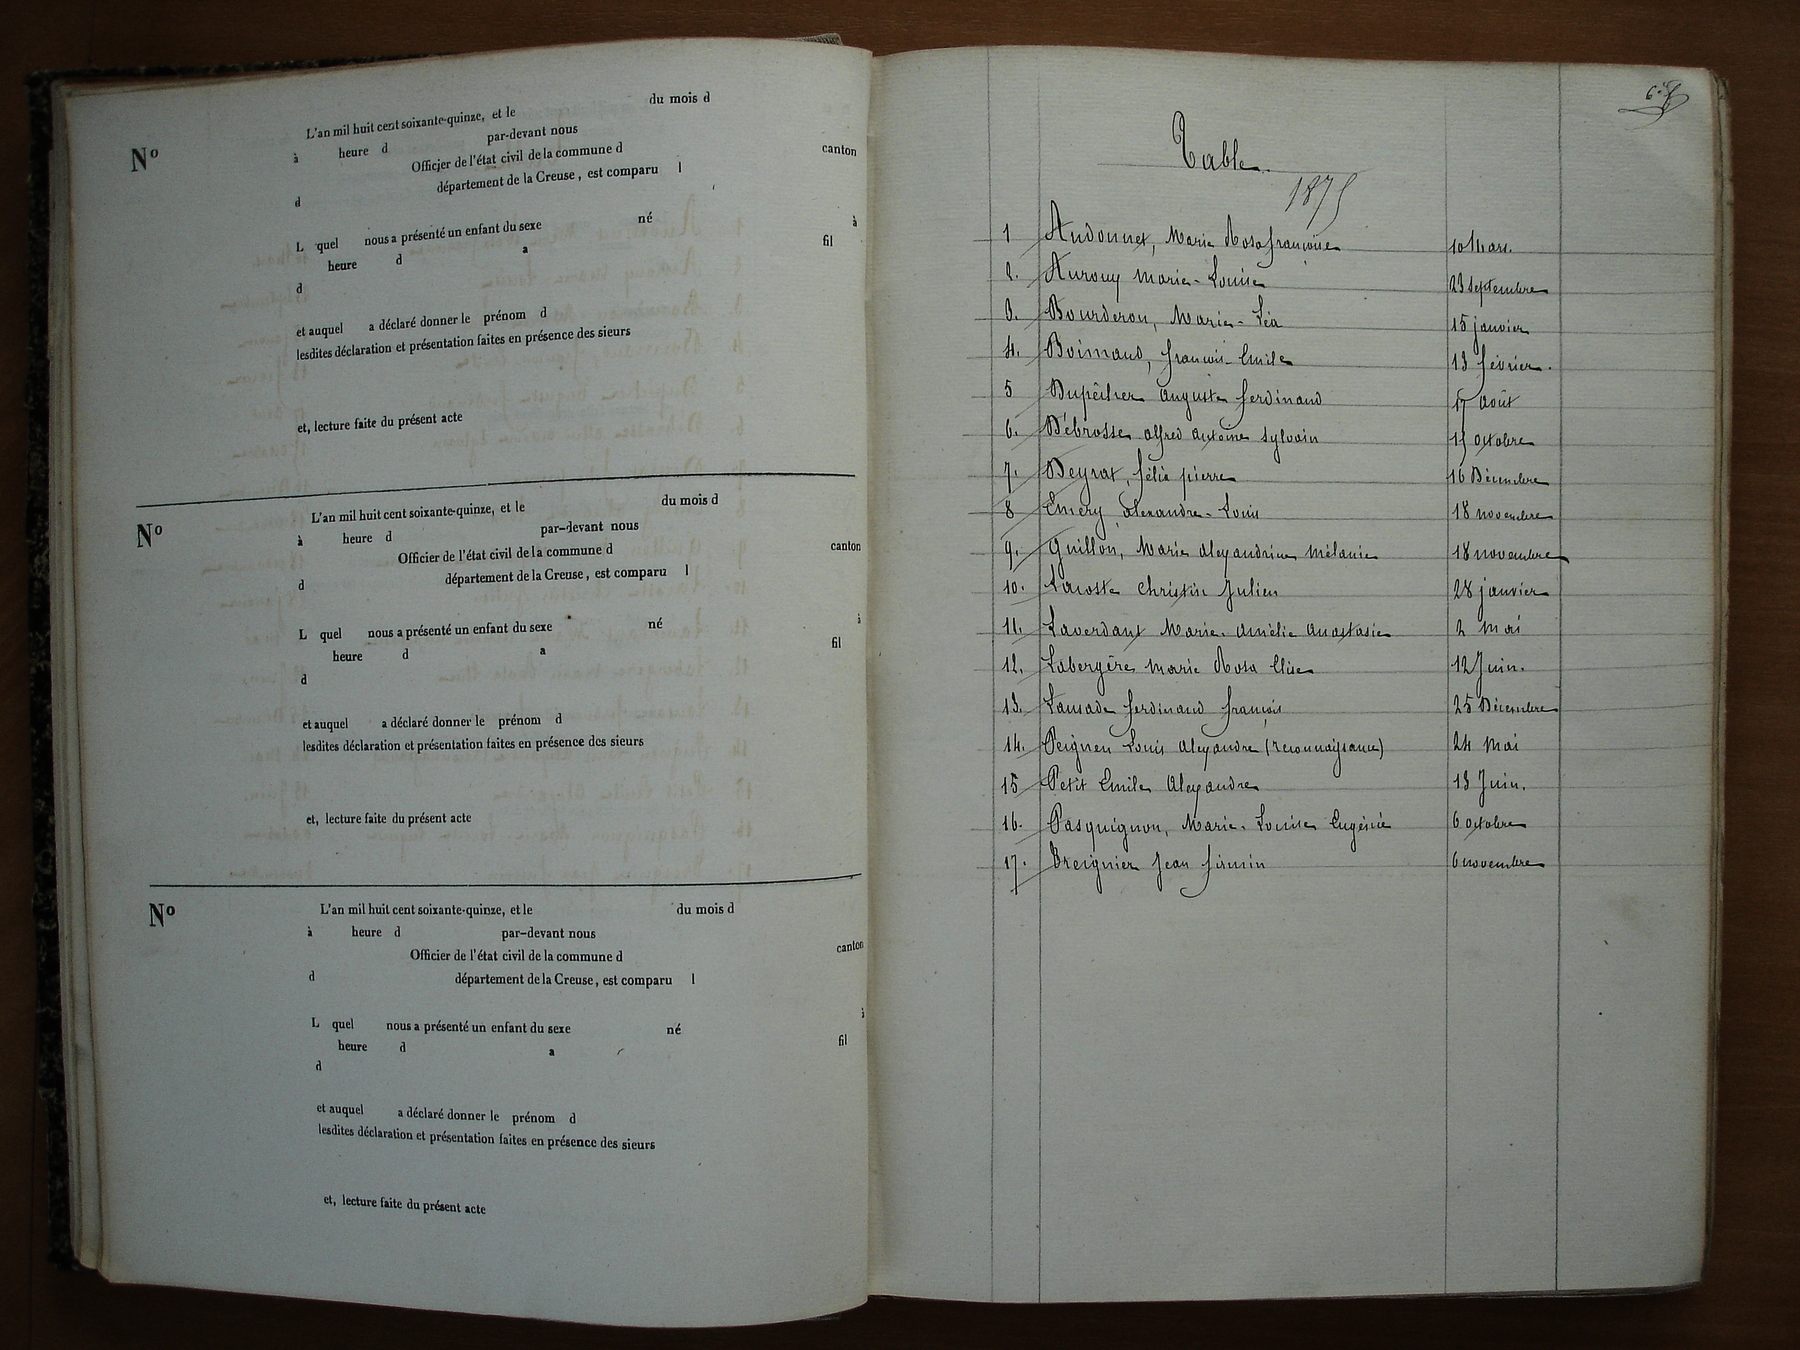 du mois d
L'an mil huit cent soixante-quinze, et le
Nº à heure d par-devant nous
Officier de l'état civil de la commune d canton
d département de la Creuse, est comparu l
L quel nous a présenté un enfant du sexe né à
heure d a fil
d
et auquel a déclaré donner le prénom d
lesdites déclaration et présentation faites en présence des sieurs
et, lecture faite du présent acte
L'an mil huit cent soixante-quinze, et le du mois d
Nº à heure d par-devant nous
Officier de l'état civil de la commune d canton
d département de la Creuse, est comparu l
L quel nous a présenté un enfant du sexe né à
heure d a fil
d
et auquel a déclaré donner le prénom d
lesdites déclaration et présentation faites en présence des sieurs
et, lecture faite du présent acte
Nº L'an mil huit cent soixante-quinze, et le du mois d
à heure d par-devant nous
Officier de l'état civil de la commune d canton
d département de la Creuse, est comparu l
L quel nous a présenté un enfant du sexe né à
heure d a fil
d
et auquel a déclaré donner le prénom d
lesdites déclaration et présentation faites en présence des sieurs
et, lecture faite du présent acte
Table
1875
1 Audonnet, Marie Rosa françoise 10 Mars.
2. Aurouy Marie-Louise 23 septembre
3. Bourderon, Marie-Léa 15 janvier
4. Boimaud, françois-Emile 13 février.
5 Dupêcher Auguste ferdinand 17 Août
6. Débrosse alfred antoine sylvain 15 octobre
7. Deyrat, félix pierre 16 Décembre
8 Emery alexandre-Louis 18 novembre
9. Guillon, Marie alexandrine Mélanie 18 novembre
10. Lacoste Christin Julien 28 janvier
11. Laverdant Marie-Amélie Anastasie 2 Mai
12. Labergère Marie Rosa Elise 12 Juin.
13. Lansade ferdinand françois 25 Décembre
14. Peigneu Louis alexandre (reconnaissance) 24 Mai
15 Petit Emile Alexandre 13 Juin.
16. Pasquignon, Marie-Louise Eugénie 6 octobre
17. Jean firmin 6 novembre